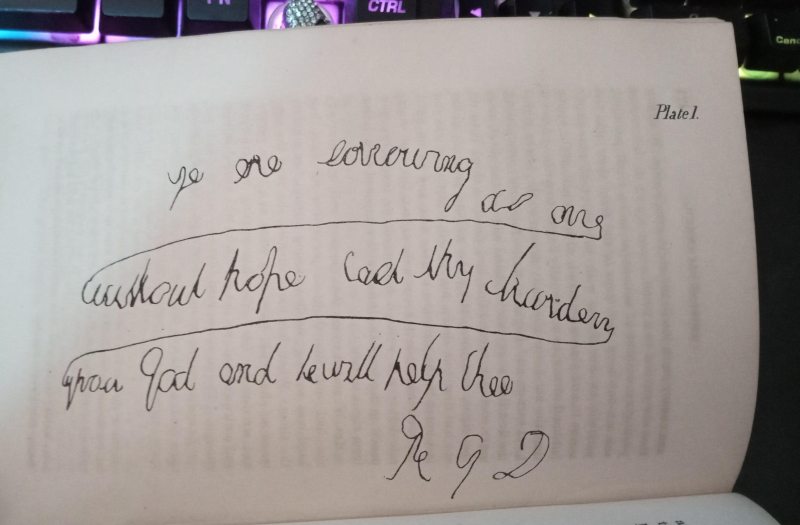 CTRL
Plate 1.
ye are sorrowing
as one
without hope Cast thy burden
upon God and he will help thee
R G D